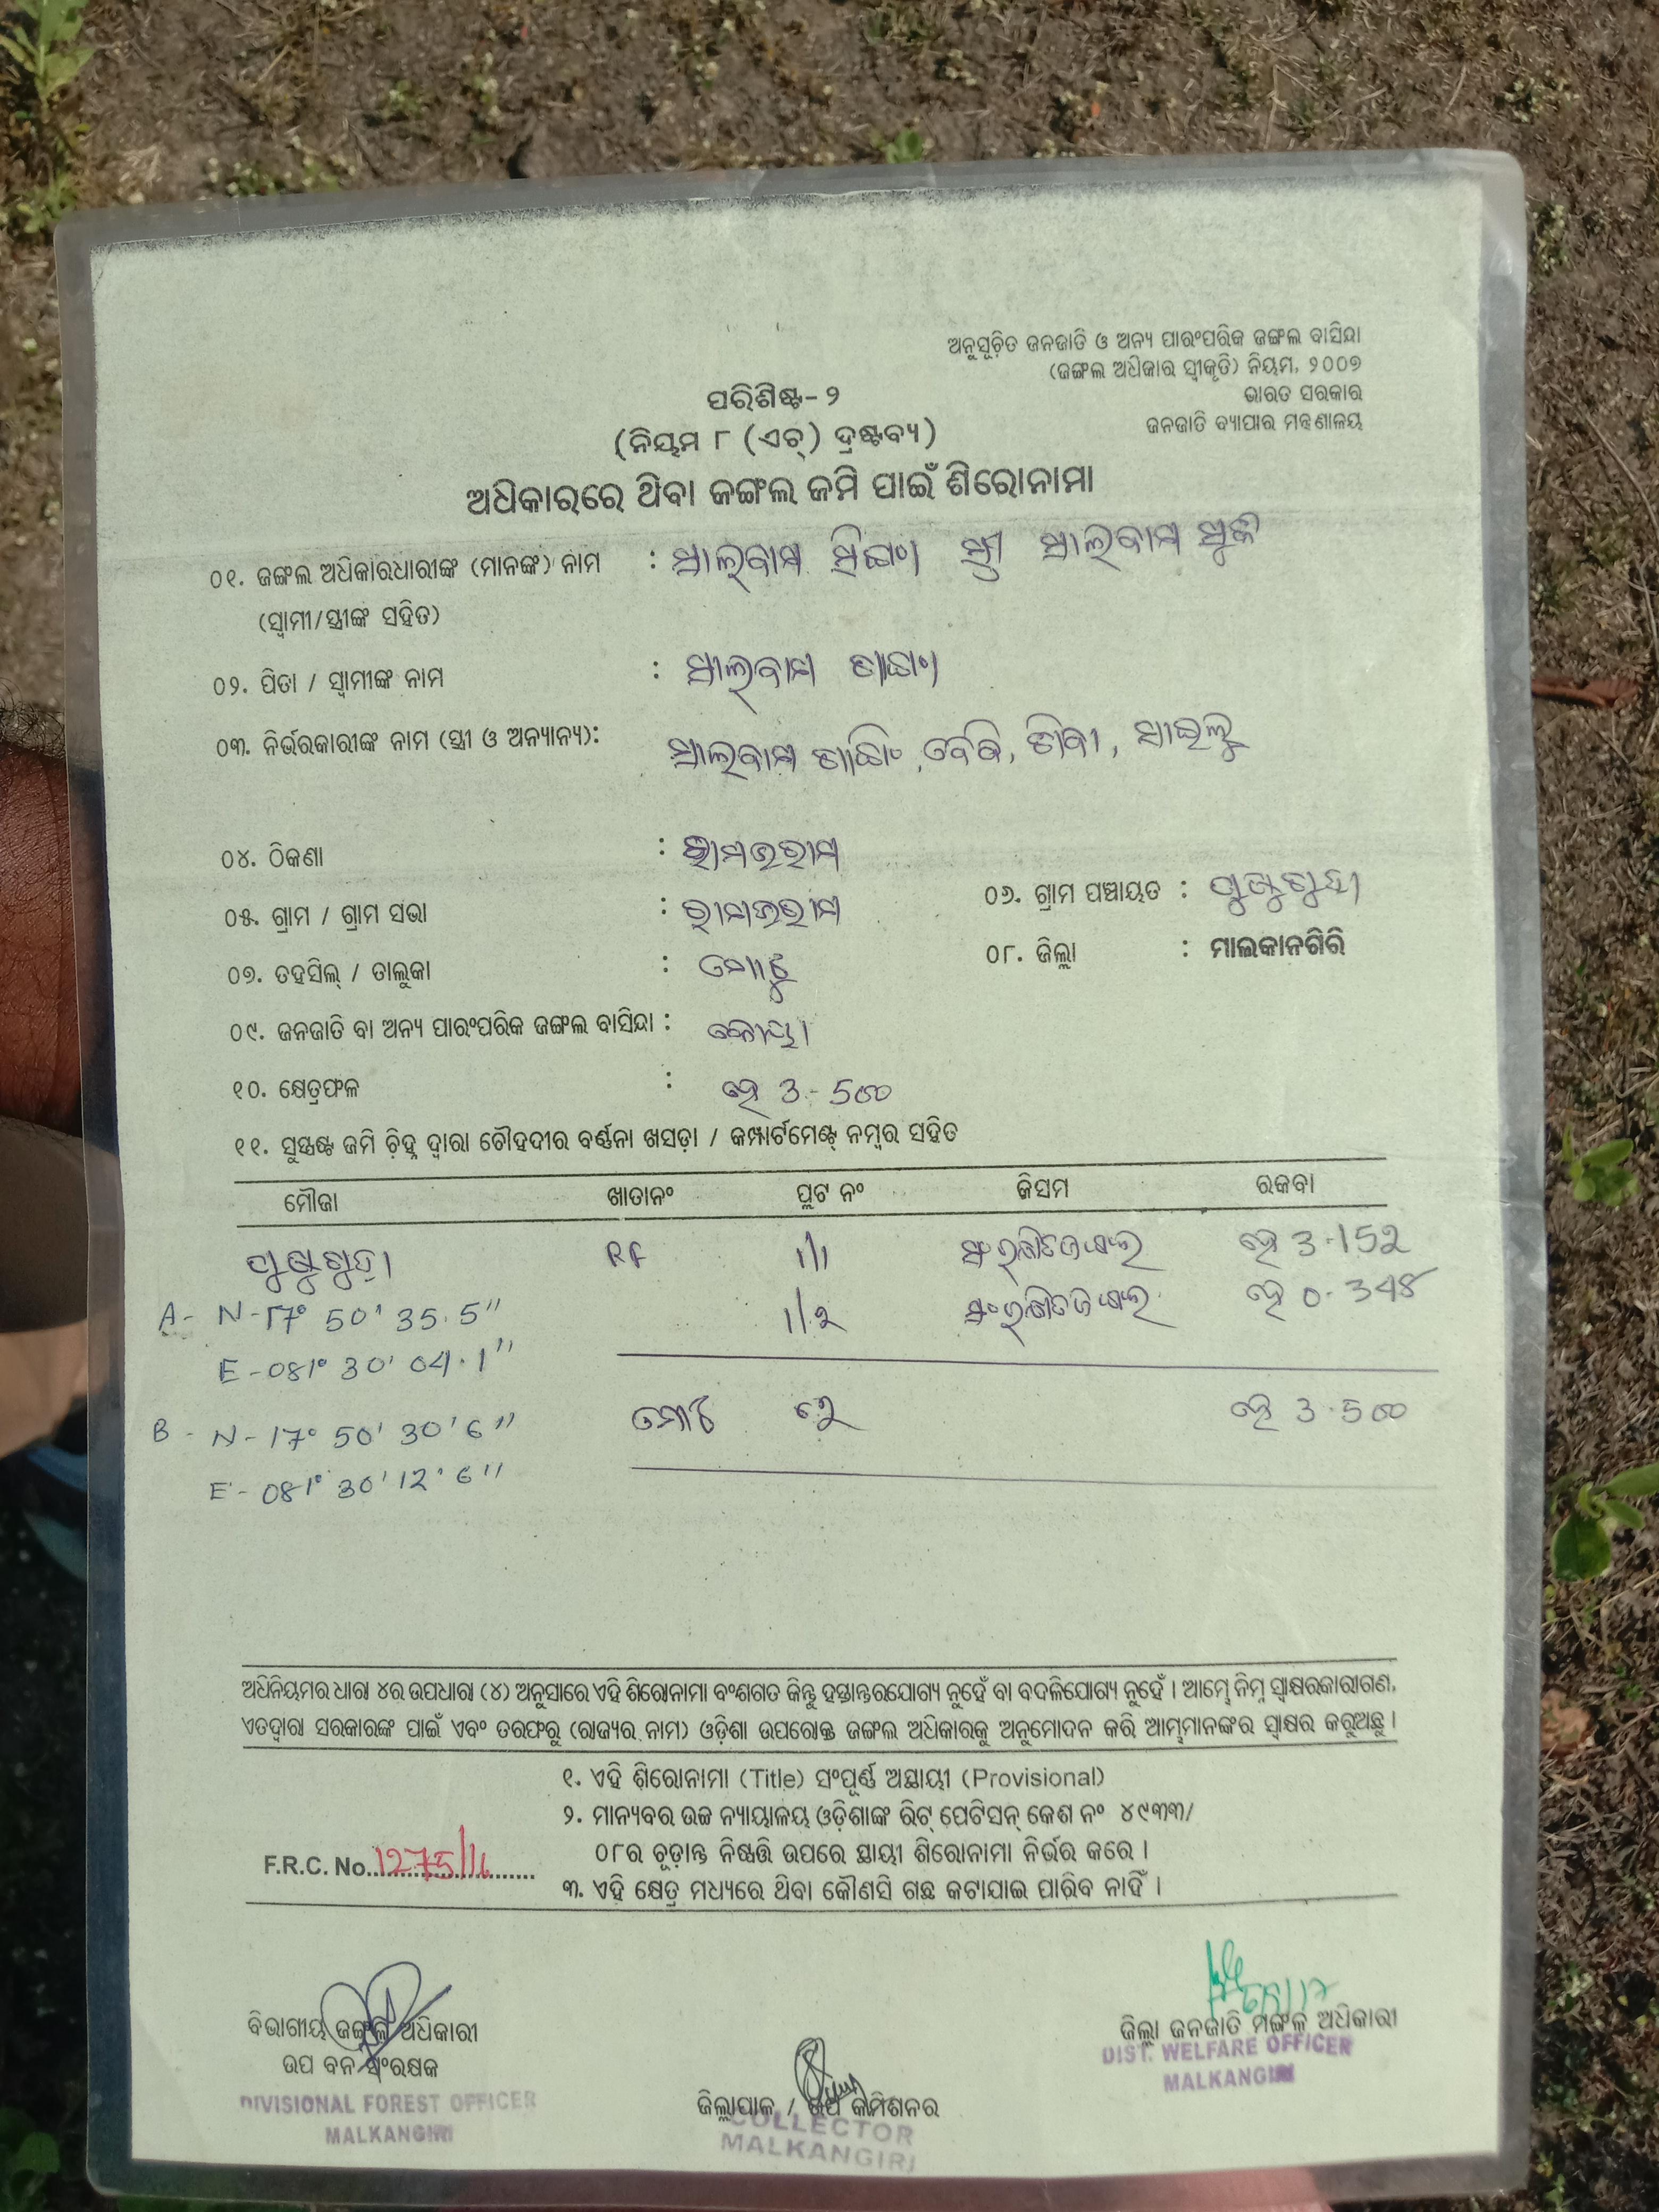 ଅନୁସୂଚିତ ଜନଜାତି ଓ ଅନ୍ୟ ପାରଂପରିକ ଜଙ୍ଗଲ ବାସିନ୍ଦା
(ଜଙ୍ଗଲ ଅଧିକାର ସ୍ୱୀକୃତି) ନିୟମ, ୨୦୦୭
ଭାରତ ସରକାର
ଜନଜାତି ବ୍ୟାପାର ମନ୍ତ୍ରଣାଳୟ
ପରିଶିଷ୍ଟ- ୨
(ନିୟମ ୮ (ଏଚ୍) ଦ୍ରଷ୍ଟବ୍ୟ)
ଅଧିକାରରେ ଥିବା ଜଙ୍ଗଲ ଜମି ପାଇଁ ଶିରୋନାମା
୦୧. ଜଙ୍ଗଲ ଅଧିକାରଧାରୀଙ୍କ (ମାନଙ୍କ) ନାମ :
(ସ୍ୱାମୀ/ସ୍ତ୍ରୀଙ୍କ ସହିତ)
୦୨. ପିତା / ସ୍ୱାମୀଙ୍କ ନାମ :
୦୩. ନିର୍ଭରକାରୀଙ୍କ ନାମ (ସ୍ତ୍ରୀ ଓ ଅନ୍ୟାନ୍ୟ):
୦୪. ଠିକଣା :
୦୫. ଗ୍ରାମ / ଗ୍ରାମ ସଭା : ୦୬. ଗ୍ରାମ ପଞ୍ଚାୟତ :
୦୭. ତହସିଲ୍ / ତାଲୁକା : ମୋଟୁ ୦୮. ଜିଲ୍ଲା : ମାଲକାନଗିରି
୦୯. ଜନଜାତି ବା ଅନ୍ୟ ପାରଂପରିକ ଜଙ୍ଗଲ ବାସିନ୍ଦା : କୋୟା
୧୦. କ୍ଷେତ୍ରଫଳ : ହେ 3.500
୧୧. ସୁସ୍ପଷ୍ଟ ଜମି ଚିହ୍ନ ଦ୍ୱାରା ଚୌହଦୀର ବର୍ଣ୍ଣନା ଖସଡ଼ା / କମ୍ପାର୍ଟମେଣ୍ଟ୍ ନମ୍ବର ସହିତ
ମୌଜା ଖାତାନଂ ପ୍ଲଟ ନଂ କିସମ ରକବା
RF 1/1 ସଂରକ୍ଷିତ ଜଙ୍ଗଲ ହେ 3.152
A- N-17° 50' 35.5" 1/2 ସଂରକ୍ଷିତ ଜଙ୍ଗଲ ହେ 0.348
E-081° 30' 04.1"
B- N-17° 50' 30'6" ମୋଟ ହେ 3.500
E-081° 30' 12'6"
ଅଧିନିୟମର ଧାରା ୪ର ଉପଧାରା (୪) ଅନୁସାରେ ଏହି ଶିରୋନାମା ବଂଶଗତ କିନ୍ତୁ ହସ୍ତାନ୍ତରଯୋଗ୍ୟ ନୁହେଁ ବା ବଦଳିଯୋଗ୍ୟ ନୁହେଁ । ଆମ୍ଭେ ନିମ୍ନ ସ୍ୱାକ୍ଷରକାରୀଗଣ,
ଏତଦ୍ୱାରା ସରକାରଙ୍କ ପାଇଁ ଏବଂ ତରଫରୁ (ରାଜ୍ୟର ନାମ) ଓଡ଼ିଶା ଉପରୋକ୍ତ ଜଙ୍ଗଲ ଅଧିକାରକୁ ଅନୁମୋଦନ କରି ଆମ୍ଭମାନଙ୍କର ସ୍ୱାକ୍ଷର କରୁଅଛୁ ।
୧. ଏହି ଶିରୋନାମା (Title) ସଂପୂର୍ଣ୍ଣ ଅସ୍ଥାୟୀ (Provisional)
୨. ମାନ୍ୟବର ଉଚ୍ଚ ନ୍ୟାୟାଳୟ ଓଡ଼ିଶାଙ୍କ ରିଟ୍ ପେଟିସନ୍ କେଶ ନଂ ୪୯୩୩/
୦୮ର ଚୂଡ଼ାନ୍ତ ନିଷ୍ପତ୍ତି ଉପରେ ସ୍ଥାୟୀ ଶିରୋନାମା ନିର୍ଭର କରେ ।
F.R.C. No. 1275/11
୩. ଏହି କ୍ଷେତ୍ର ମଧ୍ୟରେ ଥିବା କୌଣସି ଗଛ କଟାଯାଇ ପାରିବ ନାହିଁ ।
ବିଭାଗୀୟ ଜଙ୍ଗଲ ଅଧିକାରୀ
ଉପ ବନ ସଂରକ୍ଷକ
DIVISIONAL FOREST OFFICER
MALKANGIRI
ଜିଲ୍ଲାପାଳ / ଉପ କମିଶନର
COLLECTOR
MALKANGIRI
ଜିଲ୍ଲା ଜନଜାତି ମଙ୍ଗଳ ଅଧିକାରୀ
DIST. WELFARE OFFICER
MALKANGIRI